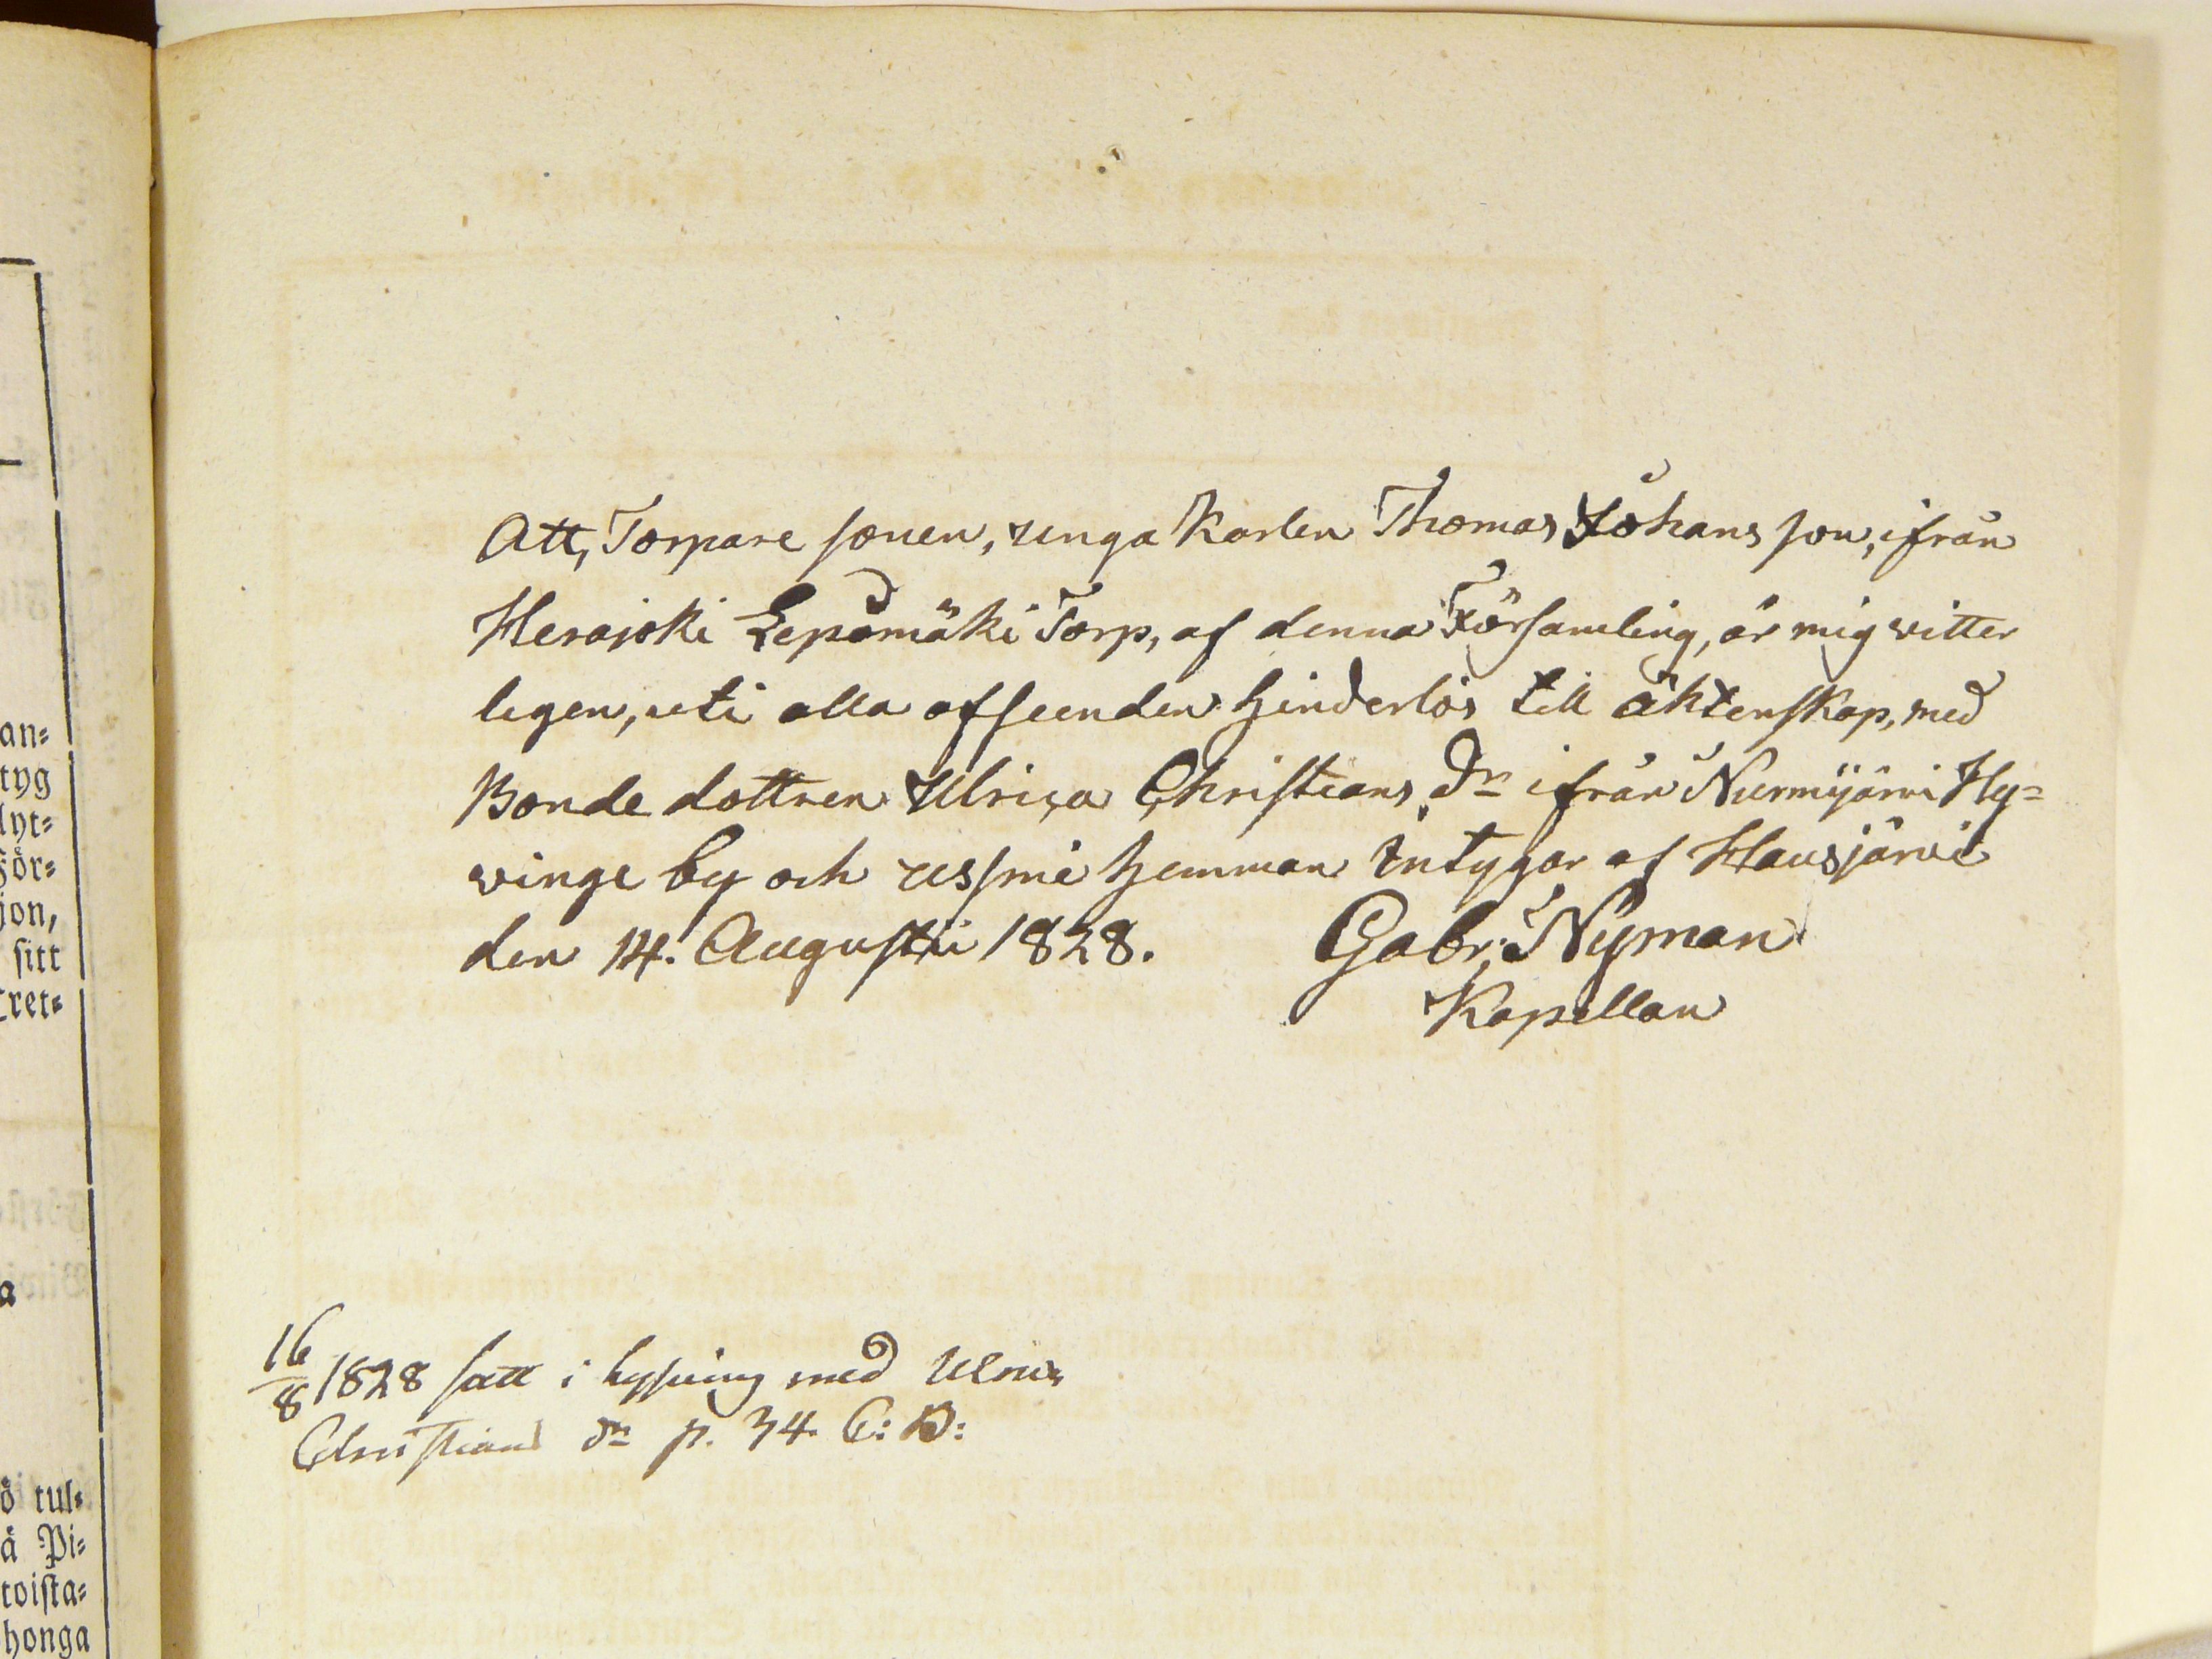 Att, Torpare sonen, unga Karlen Thomas Johans son, ifrån
Herajoki Lepämäki Torp, af denna Församling, är mig vitter
legen, uti alla afseenden hinderlös till äktenskap, med
Bonde dottren Ulrica Christians Dr ifrån Nurmijärvi Hy=
vinge by och Ussmi hemman intygar af Hausjärvi
den 14. Augustii 1828. Gabr: Nyman
Kapellan
16/8 1828 satt i lysning med Ulrica
Christians dr p. 34 C: B:
an=
tyg
lyt=
För=
son,
sitt
ret=
a
ö tul=
ä Pi=
toista=
honga